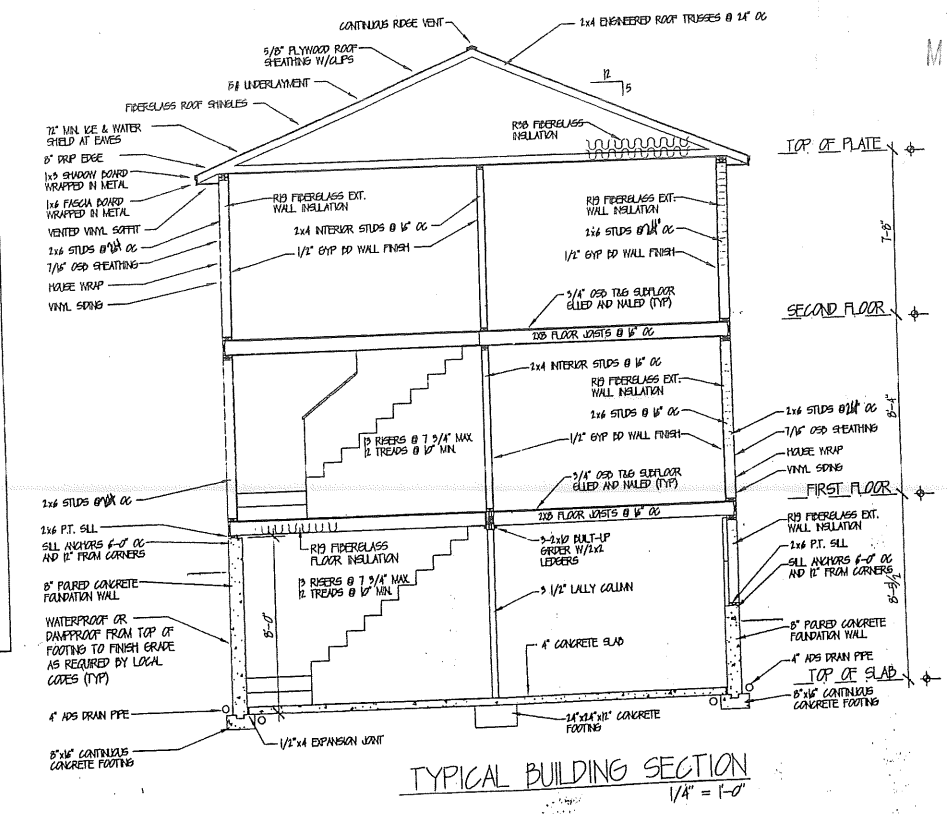 CONTINUOUS RIDGE VENT
2x4 ENGINEERED ROOF TRUSSES @ 24" OC
5/8" PLYWOOD ROOF
SHEATHING W/CLIPS
15# UNDERLAYMENT
FIBERGLASS ROOF SHINGLES
12
5
M
72" MIN. ICE & WATER
SHIELD AT EAVES
8" DRIP EDGE
1x3 SHADOW BOARD
WRAPPED IN METAL
1x6 FASCIA BOARD
WRAPPED IN METAL
VENTED VINYL SOFFIT
2x6 STUDS @ 24" OC
7/16" OSB SHEATHING
HOUSE WRAP
VINYL SIDING
R38 FIBERGLASS
INSULATION
TOP OF PLATE
R19 FIBERGLASS EXT.
WALL INSULATION
2x4 INTERIOR STUDS @ 16" OC
1/2" GYP BD WALL FINISH
R19 FIBERGLASS EXT.
WALL INSULATION
2x6 STUDS @ 24" OC
1/2" GYP BD WALL FINISH
7'-8"
3/4" OSB T&G SUBFLOOR
GLUED AND NAILED (TYP)
SECOND FLOOR
2X8 FLOOR JOISTS @ 16" OC
2x4 INTERIOR STUDS @ 16" OC
R19 FIBERGLASS EXT.
WALL INSULATION
2x6 STUDS @ 16" OC
1/2" GYP BD WALL FINISH
8'-4"
2x6 STUDS @ 24" OC
7/16" OSB SHEATHING
HOUSE WRAP
VINYL SIDING
13 RISERS @ 7 3/4" MAX
12 TREADS @ 10" MIN.
3/4" OSB T&G SUBFLOOR
GLUED AND NAILED (TYP)
FIRST FLOOR
2X8 FLOOR JOISTS @ 16" OC
2x6 STUDS @ 24" OC
2x6 P.T. SILL
SILL ANCHORS 6'-0" OC
AND 12" FROM CORNERS
8" POURED CONCRETE
FOUNDATION WALL
WATERPROOF OR
DAMPPROOF FROM TOP OF
FOOTING TO FINISH GRADE
AS REQUIRED BY LOCAL
CODES (TYP)
4" ADS DRAIN PIPE
8"x16" CONTINUOUS
CONCRETE FOOTING
R19 FIBERGLASS
FLOOR INSULATION
13 RISERS @ 7 3/4" MAX
12 TREADS @ 10" MIN.
8'-0"
3-2x10 BUILT-UP
GIRDER W/2x2
LEDGERS
3 1/2" LALLY COLUMN
4" CONCRETE SLAB
R19 FIBERGLASS EXT.
WALL INSULATION
2x6 P.T. SILL
SILL ANCHORS 6'-0" OC
AND 12" FROM CORNERS
8'-5 1/2"
8" POURED CONCRETE
FOUNDATION WALL
4" ADS DRAIN PIPE
TOP OF SLAB
8"x16" CONTINUOUS
CONCRETE FOOTING
1/2"x4 EXPANSION JOINT
24"x24"x12" CONCRETE
FOOTING
TYPICAL BUILDING SECTION
1/4" = 1'-0"